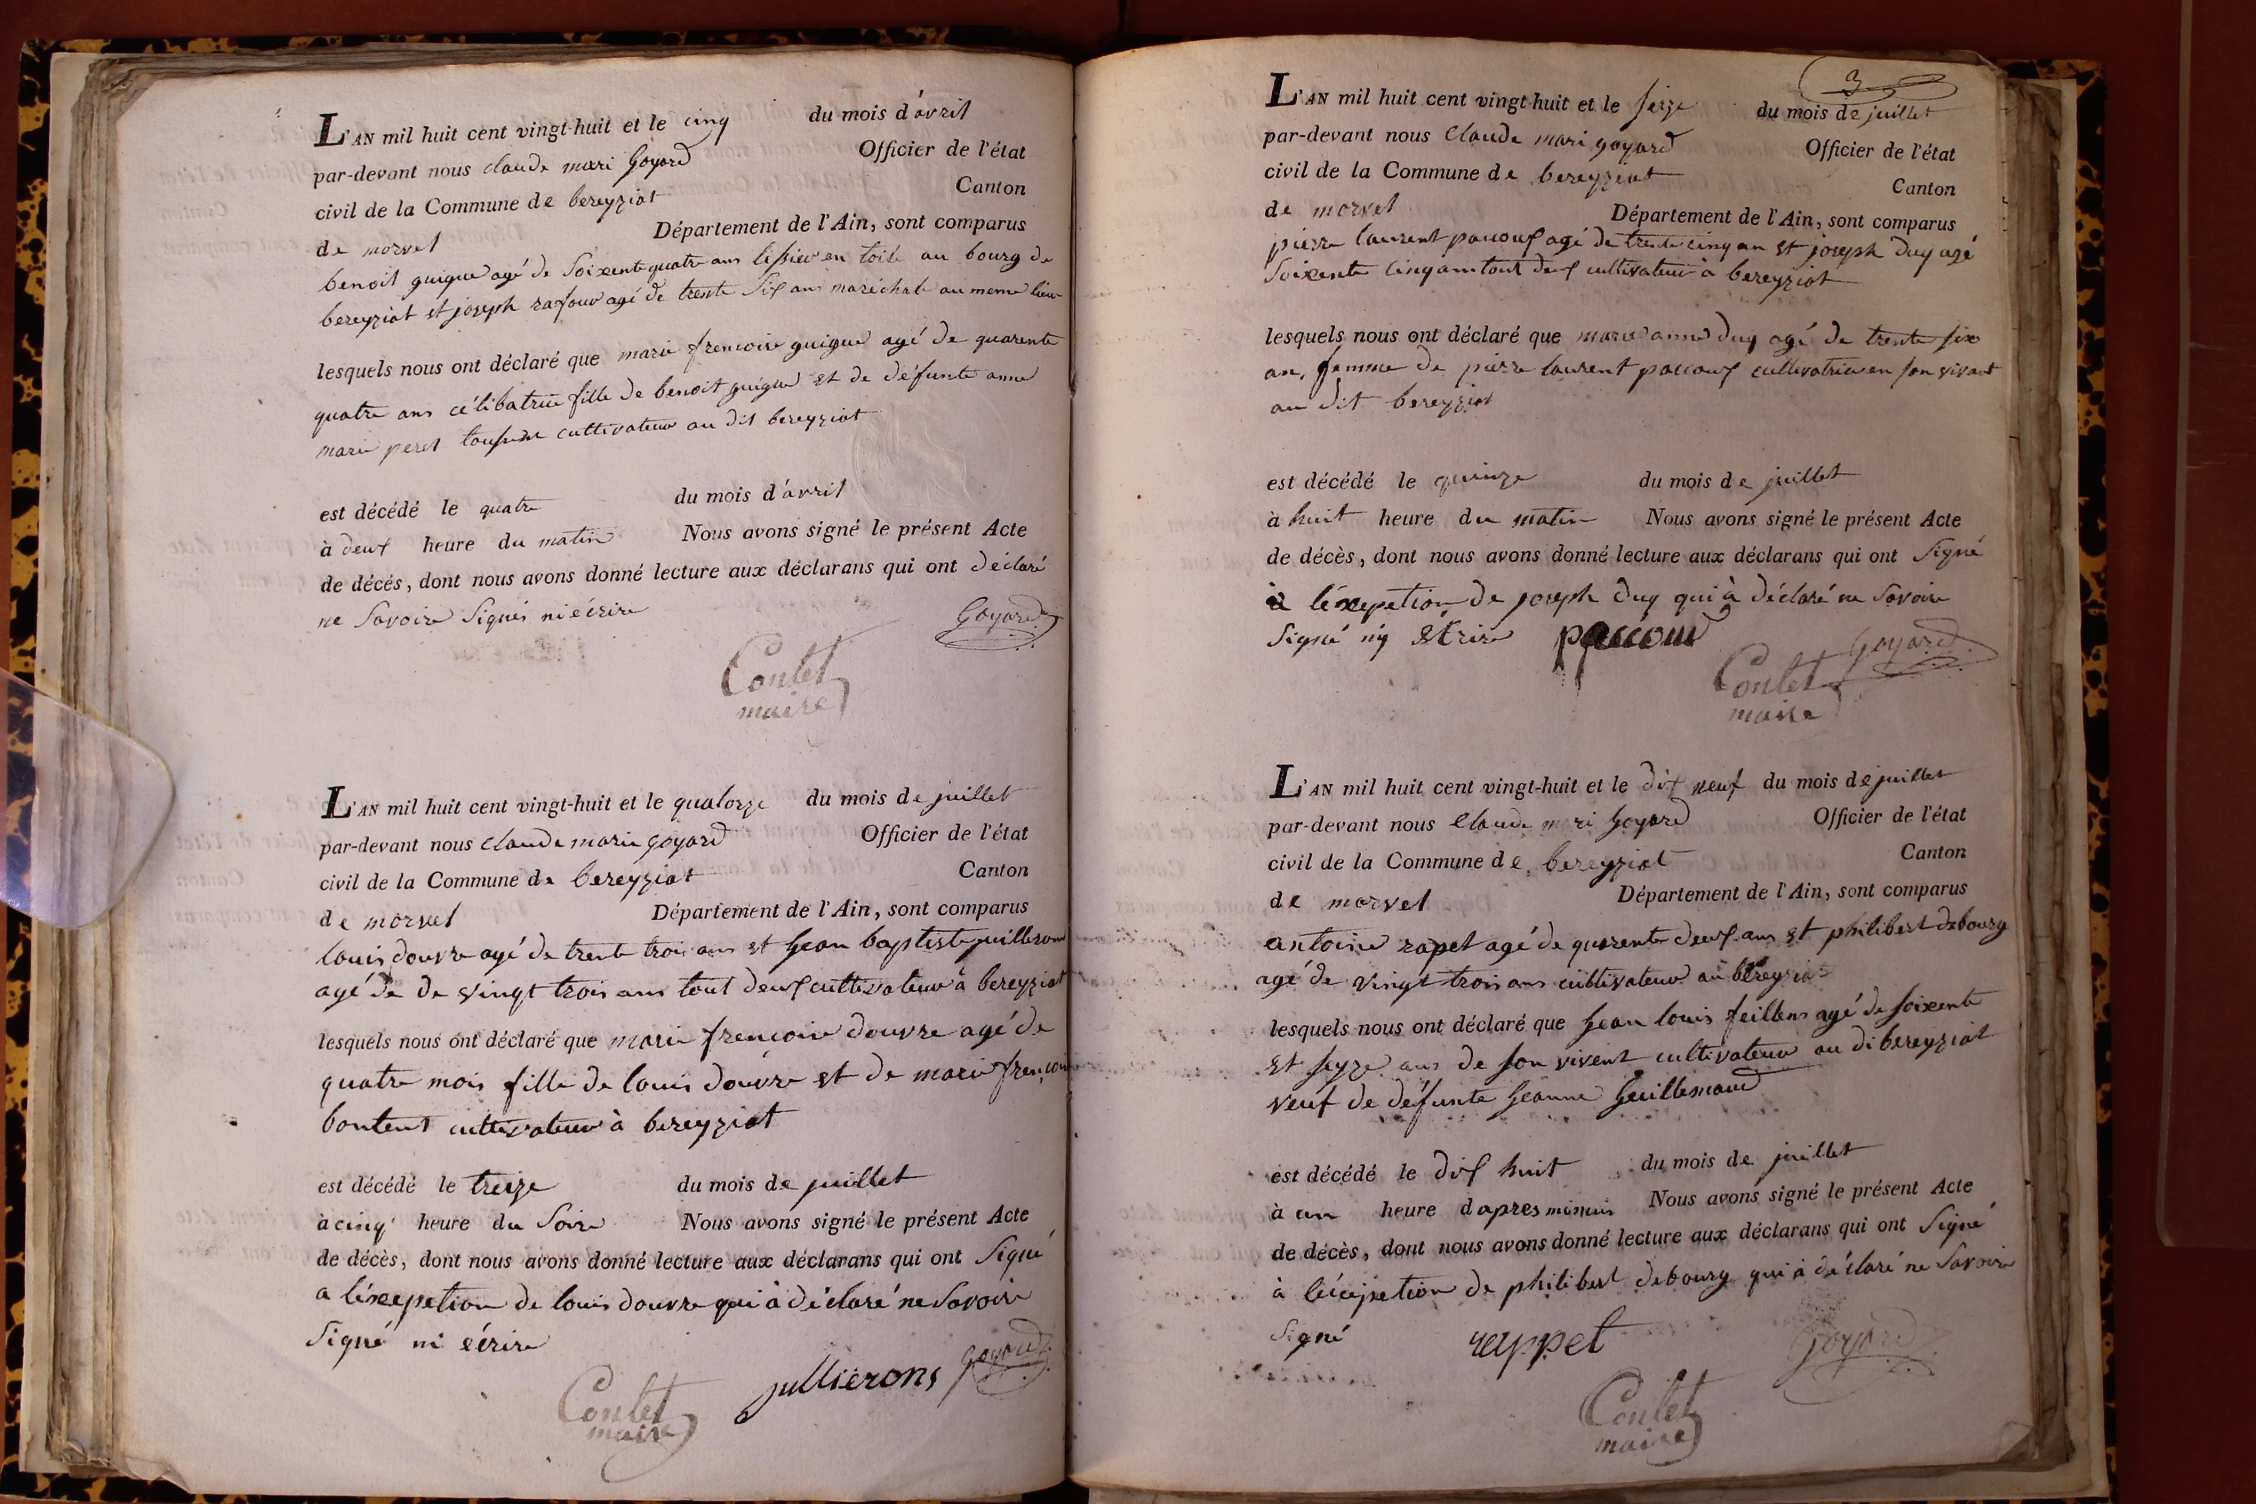 L'AN mil huit cent vingt-huit et le cinq du mois d'avril
par-devant nous claude mari Goyard Officier de l'état
civil de la Commune de bereyziat Canton
de morvel Département de l'Ain, sont comparus
benoit guigue agé de soixente quatre ans tissieu en toile au bourg de
bereyziat et joseph rafour agé de trente six ans maréchale au meme lieu
lesquels nous ont déclaré que marie frencoise guigue agé de quarente
quatre ans célibatrice fille de benoit guigue et de défunte anne
marie peret cultivateur au dit bereyziat
est décédé le quatre du mois d'avril
à deux heure du matin Nous avons signé le présent Acte
de décés, dont nous avons donné lecture aux déclarans qui ont déclaré
ne savoire signés ni eécrire Goyard
Contet
maire
L'AN mil huit cent vingt-huit et le quatorze du mois de juillet
par-devant nous claude marie goyard Officier de l'état
civil de la Commune de bereyziat Canton
de morvel Département de l'Ain, sont comparus
louis douvre agé de trente trois ans et jean baptiste juilleron
agé de de vingt trois ans tout deux cultivateur à bereyziat
lesquels nous ont déclaré que marie frencoise douvre agé de
quatre mois fille de louis douvre et de marie frencoise
bontent cultivateur à bereyziat
est décédé le treize du mois de juillet
à cinq heure du soire Nous avons signé le présent Acte
de décès, dont nous avons donné lecture aux déclarans qui ont signé
a léxepetion de louis douvre qui à déclaré ne savoire
signé ni eécrire
jullierons goyard
Contet
maire
3
L'AN mil huit cent vingt-huit et le seize du mois de juillet
par-devant nous claude mari goyard Officier de l'état
civil de la Commune de bereyziat Canton
de morvel Département de l'Ain, sont comparus
pierre laurent pacoux agé de trente cinq an et joseph duy agé
soixente cinq an tout deux cultivateur à bereyziat
lesquels nous ont déclaré que marie anne duy agé de trente six
an, femme de pierre laurent paccoux cultivatrice en son vivant
au dit bereyziat
est décédé le quinze du mois de juillet
à huit heure du matin Nous avons signé le présent Acte
de décès, dont nous avons donné lecture aux déclarans qui ont signé
à léxepetion de joseph duy qui à déclaré ne savoire
signé ny écrire paccoud Goyard
Contet
maire
L'AN mil huit cent vingt-huit et le dix neuf du mois de juillet
par-devant nous claude mari goyard Officier de l'état
civil de la Commune de bereyziat Canton
de morvel Département de l'Ain, sont comparus
antoine rapet agé de quarente deux ans et philibert debourg
agé de vingt trois ans cultivateur au bereyziat
lesquels nous ont déclaré que jean louis feillens agé de soixente
et seyze ans de son vivent cultivateur au di bereyziat
veuf de défunte jeanne Guillemaud
est décédé le dix huit du mois de juillet
à un heure dapres minuis Nous avons signé le présent Acte
de décès, dont nous avons donné lecture aux déclarans qui ont signé
à léxepetion de philibert debourg qui à déclaré ne savoire
signé reyppet Goyard
Contet
maire